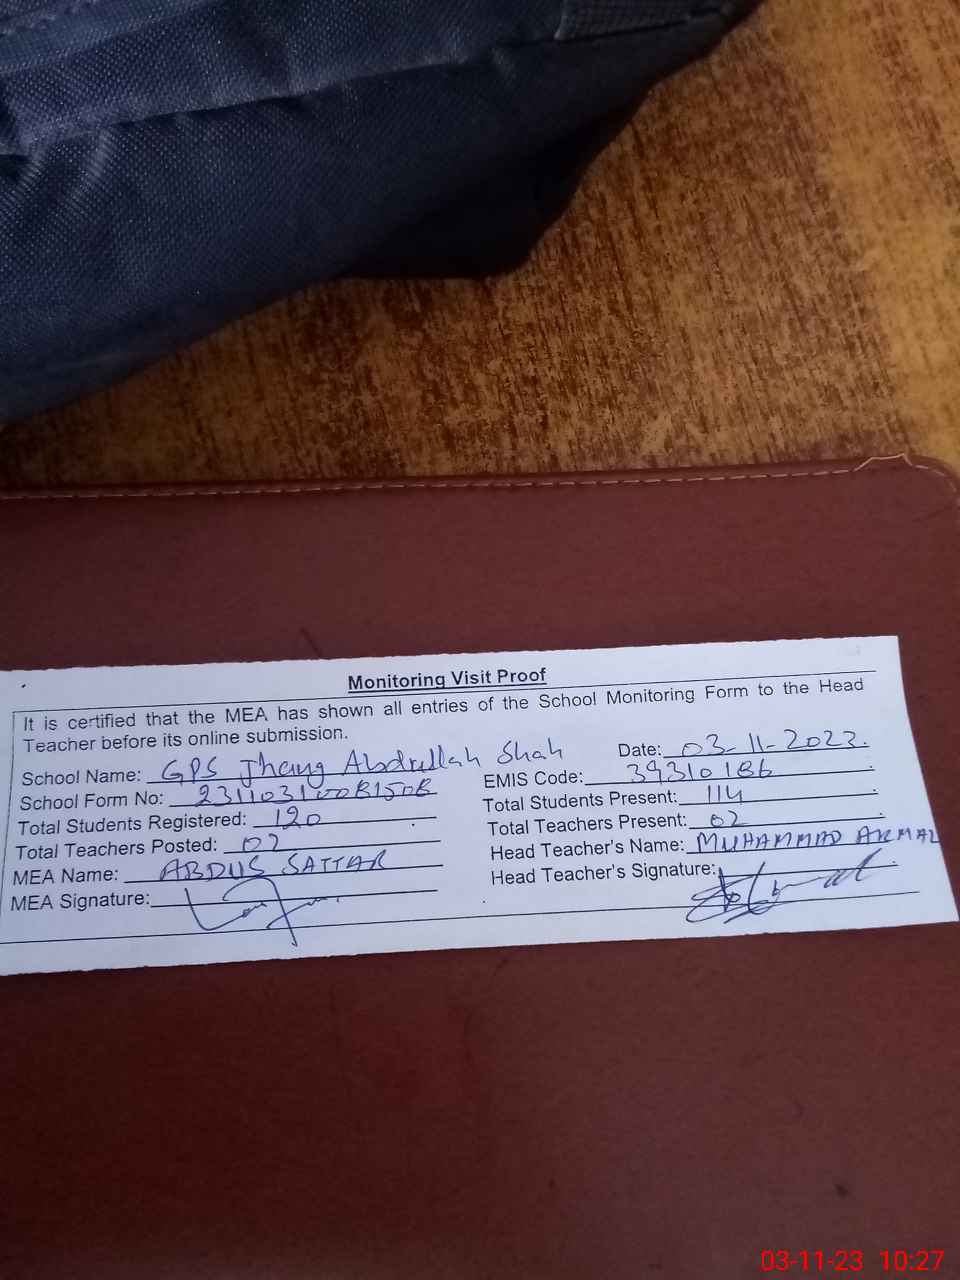 Monitoring Visit Proof
It is certified that the MEA has shown all entries of the School Monitoring Form to the Head
Teacher before its online submission.
School Name: GPS Jhang Abdullah Shah
Date: 03-11-2023.
School Form No:
EMIS Code: 39310186
Total Students Registered: 120
Total Students Present: 114
Total Teachers Posted: 02
Total Teachers Present: 02
MEA Name: ABDUS SATTAR
Head Teacher's Name: MUHAMMAD AKMAL
MEA Signature:
Head Teacher's Signature:
03-11-23 10:27